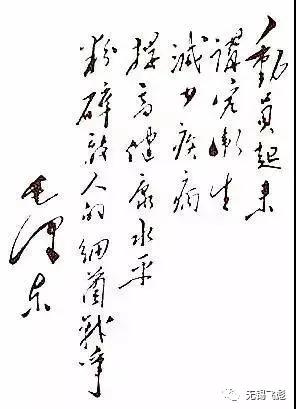 動員起来
講究衛生
减少疾病
提高健康水平
粉碎敌人的细菌战争
毛泽东
无锡飞彪